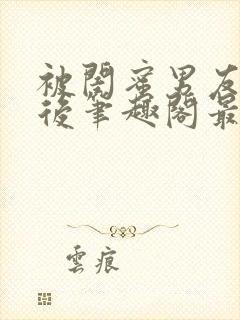 被閨蜜男友
後筆趣閣最
雲痕